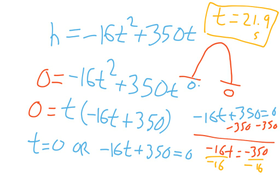 h = -16t² + 350t
t = 21.9 s
0 = -16t² + 350t
0 0
0 = t(-16t + 350)
t = 0 OR -16t + 350 = 0
-16t + 350 = 0
-350 -350
-16t = -350
-16 -16